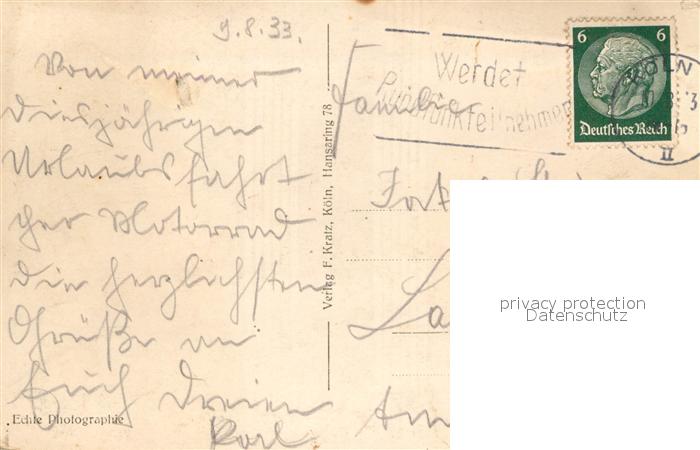 9.8.33.
Von meiner
diesjährigen
Urlaubsfahrt
per Motorrad
die herzlichsten
Grüße an
Euch dreien
Karl
Echte Photographie
Verlag F. Kratz, Köln, Hansaring 78
Werdet
Rundfunkteilnehmer
6 6
Deutsches Reich
KÖLN
II
Familie
privacy protection
Datenschutz